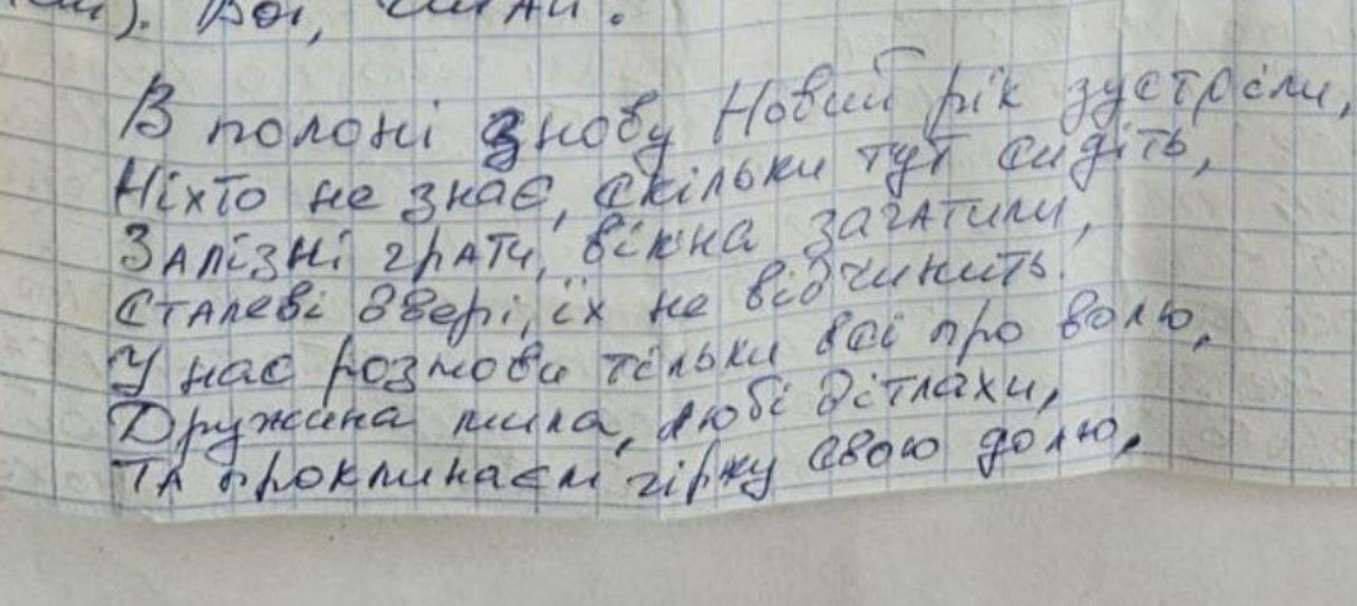 В полоні знову Новий рік зустріли,
Ніхто не знає, скільки тут сидіть,
Залізні грати, вікна загатили,
Сталеві двері, їх не відчинить.
У нас розмови тільки всі про волю,
Дружина мила, любі дітлахи,
Та проклинаєм гірку свою долю,